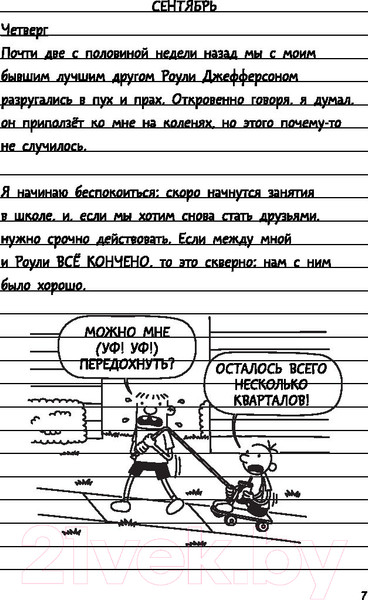 СЕНТЯБРЬ
Четверг
Почти две с половиной недели назад мы с моим
бывшим лучшим другом Роули Джефферсоном
разругались в пух и прах. Откровенно говоря, я думал,
он приползёт ко мне на коленях, но этого почему-то
не случилось.
Я начинаю беспокоиться: скоро начнутся занятия
в школе, и, если мы хотим снова стать друзьями,
нужно срочно действовать. Если между мной
и Роули ВСЁ КОНЧЕНО, то это скверно: нам с ним
было хорошо.
МОЖНО МНЕ
(УФ! УФ!)
ПЕРЕДОХНУТЬ?
ОСТАЛОСЬ ВСЕГО
НЕСКОЛЬКО
КВАРТАЛОВ!
21vek.by
7